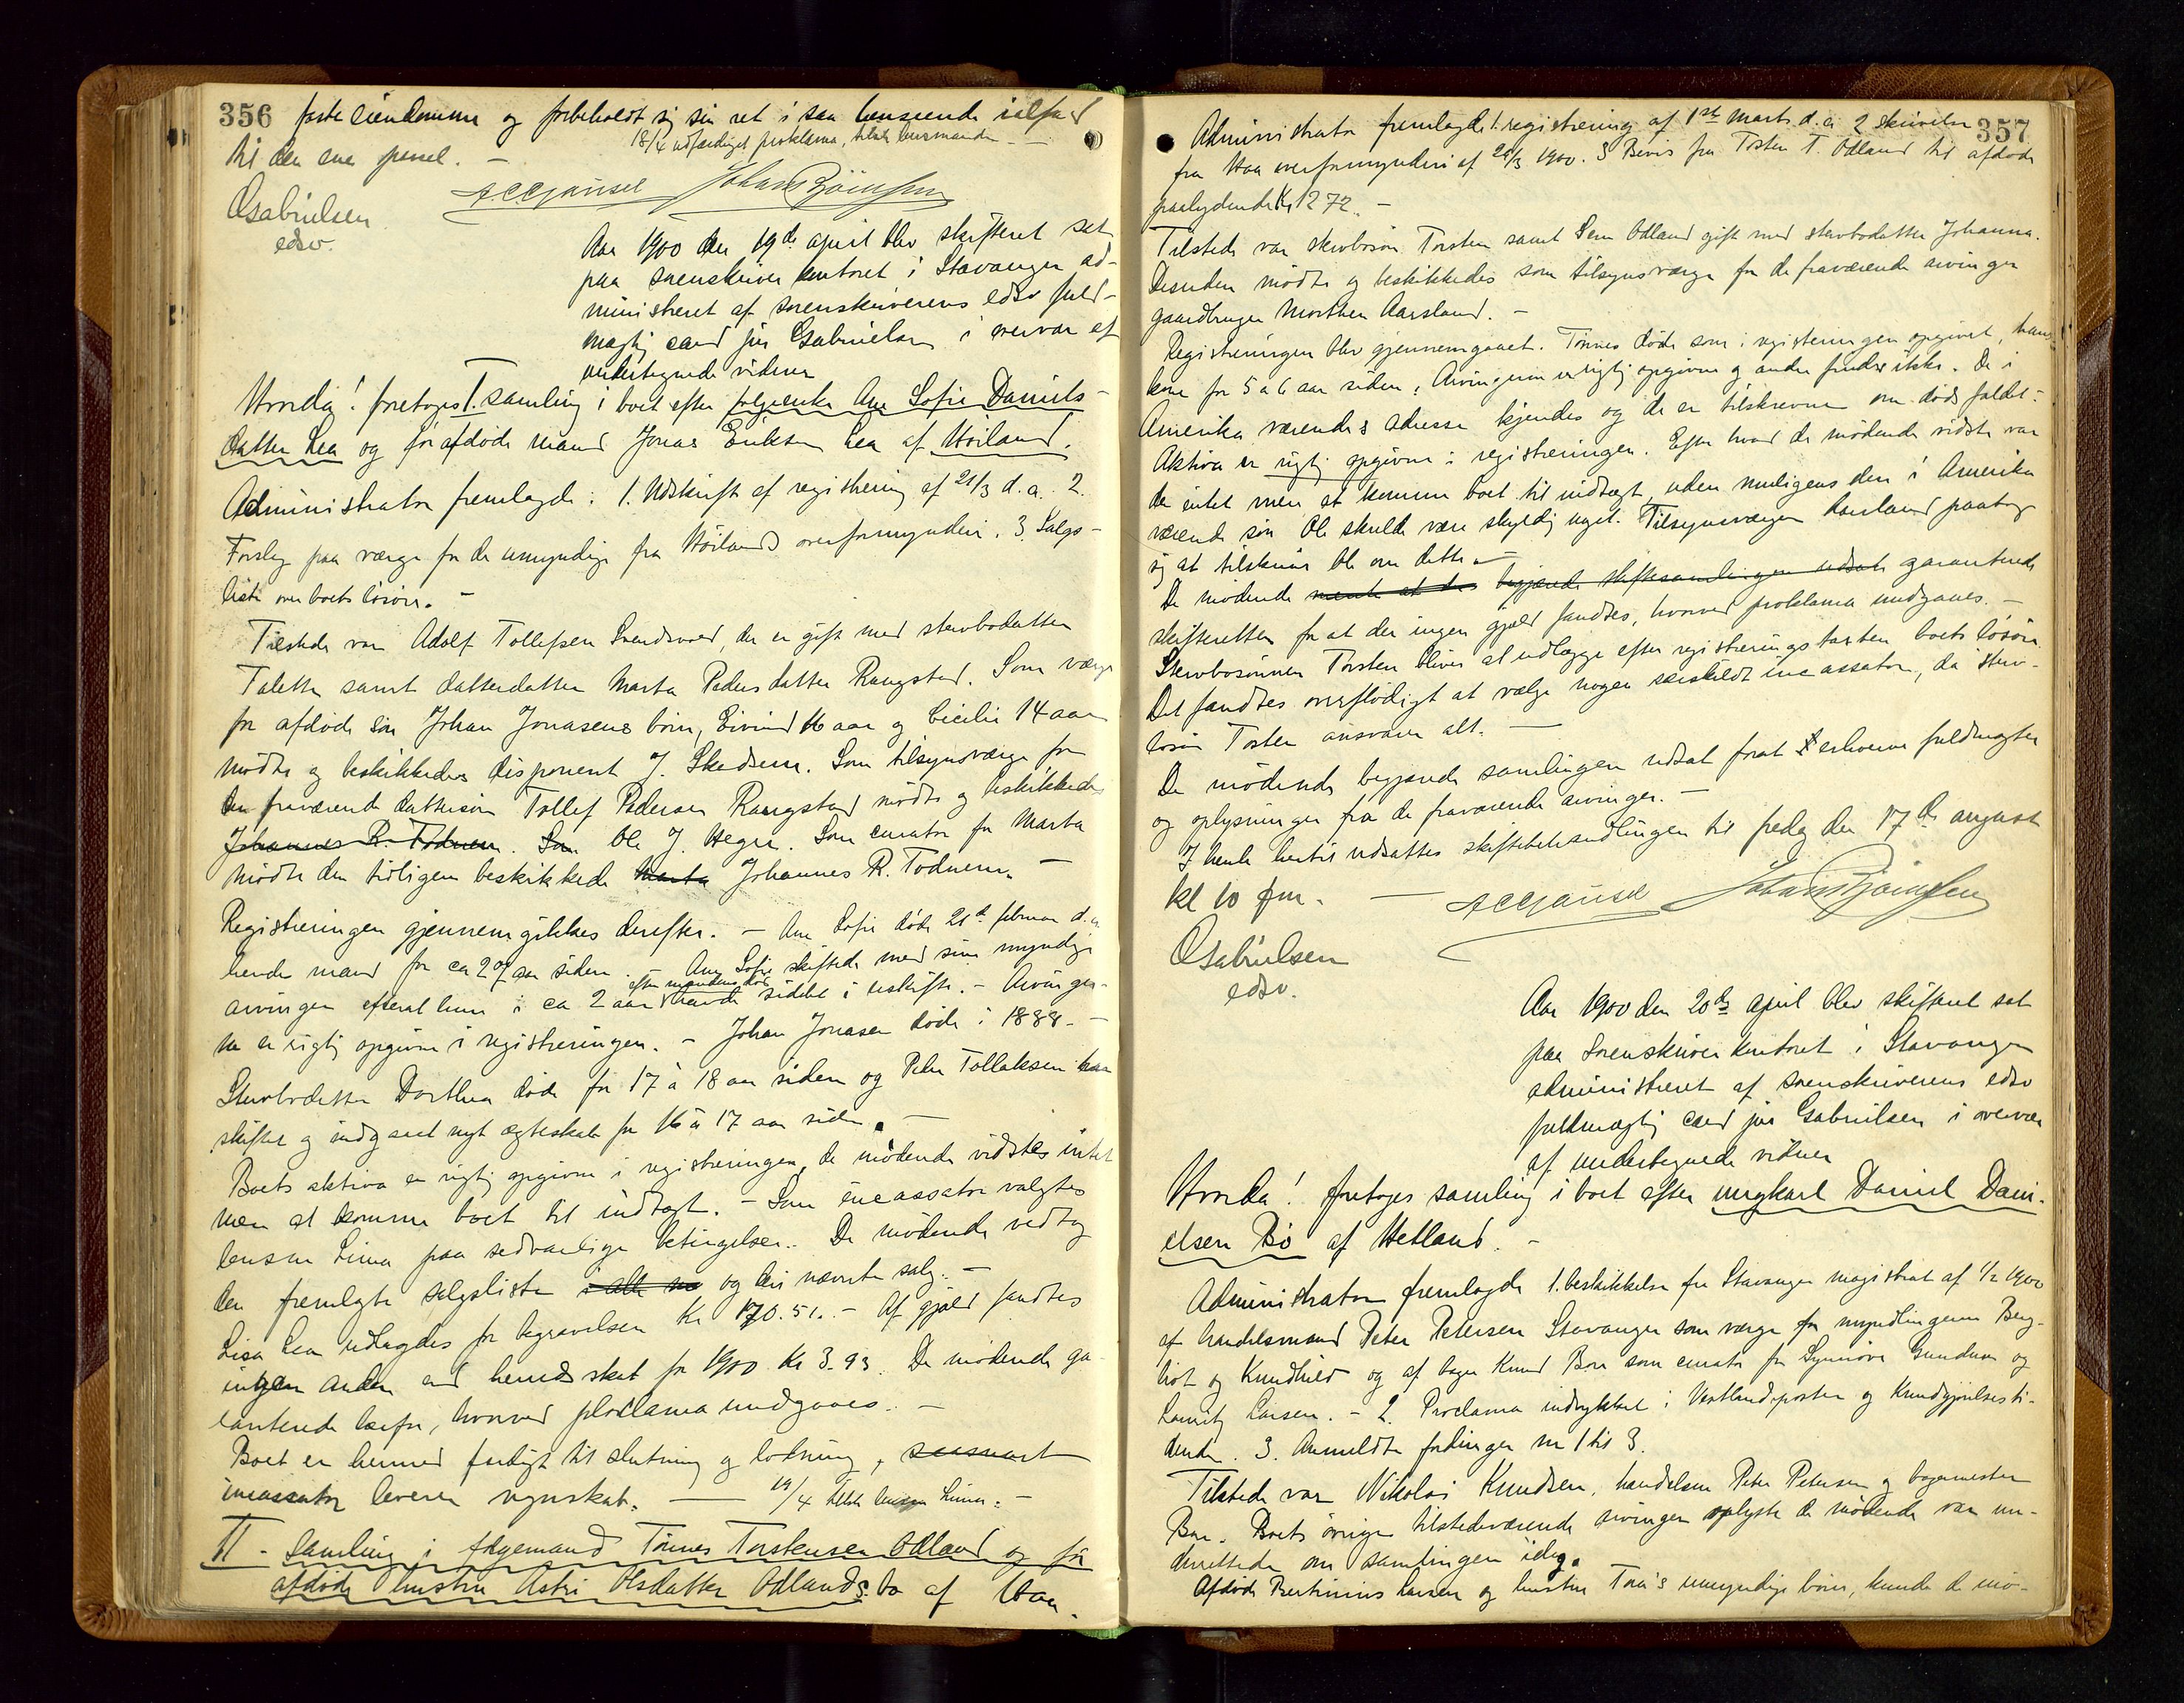 356 faste eiendomme og forbeholdt sig sin ret i saa henseende ialfald
til den ene parsel. — 18/4 udfærdiget proklama, tilskr. lensmanden —
Gabrielsen
edsv.
Aar 1900 den 19de april blev skifteret sat
paa sorenskriverkontoret i Stavanger ad-
ministreret af sorenskriverens edsv fuld-
mægtig cand jur Gabrielsen i overvær af
undertegnede vidner
Hvorda! foretoges I. samling i boet efter folgeenke Ane Sofie Daniels-
datter Lea og før afdøde mand Jonas Eriksen Lea af Høiland.
Administrator fremlagde: 1. Udskrift af registrering af 21/3 d.a. 2.
Forslag paa værge for de umyndige fra Høilands overformynderi. 3. Salgs-
liste over boets løsøre. —
Tilstede var Adolf Tollefsen, der er gift med stervbodatter
Taletta samt datterdatter Marta Pedersdatter Rangstad. Som værge
for afdøde søn Johan Jonasens børn, Eivind 16 aar og Cicilie 14 aar
mødte og beskikkedes disponent J. Skadsem. Som tilsynsværge for
den fraværende dattersøn Tollef Pedersen Rangstad mødte og beskikkedes
Johannes R. Todnem. Som Ole J. Hegre. Som curator for Marta
mødte den tidligere beskikkede Marta Johannes R. Todnem. —
Registreringen gjennemgikkes derefter. — Ane Sofie døde 21de februar d.a.
hendes mand for ca 27 aar siden. — Ane Sofie skiftede med sine myndige
arvinger efterat hun i ca 2 aar efter mandens død havde siddet i uskifte. — Arvinger-
ne er rigtig opgivne i registreringen. — Johan Jonasen døde i 1888. —
Stervbodatter Dorthea døde for 17 à 18 aar siden og Peder Tollaksen har
skiftet og indgaaet nyt ægteskab for 16 à 17 aar siden. —
Boets aktiva er rigtig opgivne i registreringen, de mødende vidste intet
mere at komme boet til indtægt. — Som incassator valgtes
lensm Lima paa sedvanlige betingelser. De mødende vedtog
den fremlagte salgsliste i alle og det nævnte salg. —
Lisa Lea udlagdes for begravelsen Kr 170.51. — Af gjæld fandtes
ingen anden end herredsskat for 1900 Kr 3.93. De mødende ga-
ranterede herfor, hvorved proclama undgaaes. —
Boet er hermed færdigt til slutning og lodning, saasnart
incassator leverer regnskab. — 19/4 tilskr lensm Lima. —
II — Samling i følgemand Tønnes Torstensen Odland og før
afdøde hustru Astri Olsdatter Odlands bo af Haa.
357
Administrator fremlagde 1. registrering af 1ste marts d.a. 2 skrivelse
fra Haa overformynderi af 26/3 1900. 3 Bevis fra Tosten T. Odland til afdøde
paalydende Kr 1272. —
Tilstede var stervbosøn Torsten samt Sem Odland gift med stervbodatter Johanna.
Desuden mødte og beskikkedes som tilsynsværge for de fraværende arvinger
gaardbruger Morthen Aarsland. —
Registreringen blev gjennemgaaet. Tønnes døde som i registreringen opgivet, hans
kone for 5 a 6 aar siden. Arvingerne er rigtig opgivne og andre findes ikke. De i
Amerika værendes adresse kjendes og de er tilskrevne om dødsfaldet.
Aktiva er rigtig opgivne i registreringen. Efter hvad de mødende vidste var
der intet mere at komme boet til indtægt, uden muligens den i Amerika
værende søn Ole skulde være skyldig noget. Tilsynsværgen Aarsland paatog
sig at tilskrive Ole om dette. —
De mødende mente at der begjærede skiftesamlingen udsat garanterede
skifteretten for at der ingen gjæld fandtes, hvorved proklama undgaaes. —
Stervbosønnen Torsten bliver at udlægge efter registreringstaxten boets løsøre.
Det fandtes overflødigt at vælge nogen særskildt incassator, da sterv-
bosøn Tosten ansvarer alt. —
De mødende begjærede samlingen udsat forat erhverve fuldmagter
og oplysninger fra de fraværende arvinger. —
I henh hertil udsattes skiftebehandlingen til fredag den 17de august
kl 10 fm. —
Gabrielsen
edsv.
Aar 1900 den 20de april blev skifteret sat
paa Sorenskriverkontoret i Stavanger
administreret af sorenskriverens edsv
fuldmægtig cand jur Gabrielsen i overvær
af undertegnede vidner
Hvorda! foretoges samling i boet efter ungkarl Daniel Dani-
elsen Bø af Hetland. —
Administrator fremlagde 1. beskikkelse fra Stavanger magistrat af 1/2 1900
af handelsmand Peter Petersen Stavanger som værge for myndlingerne Berg-
liot og Knudhild og af bager Knud Bore som curator for Synnøve Gundersen og
Lauritz Larsen. — 2. Proclama indrykket i Vestlandsposten og Kundgjørelsesti-
dende. 3. Anmeldte fordringer nr 1 til 3.
Tilstede var Nikolai Knudsen, handelsm Peter Petersen og bagermester
Bore. Boets øvrige tilstedeværende arvinger oplyste de mødende var un-
derrettede om samlingen idag.
Afdøde Bertinius Larsen og hustru Tora's umyndige børn, kunde de mø-